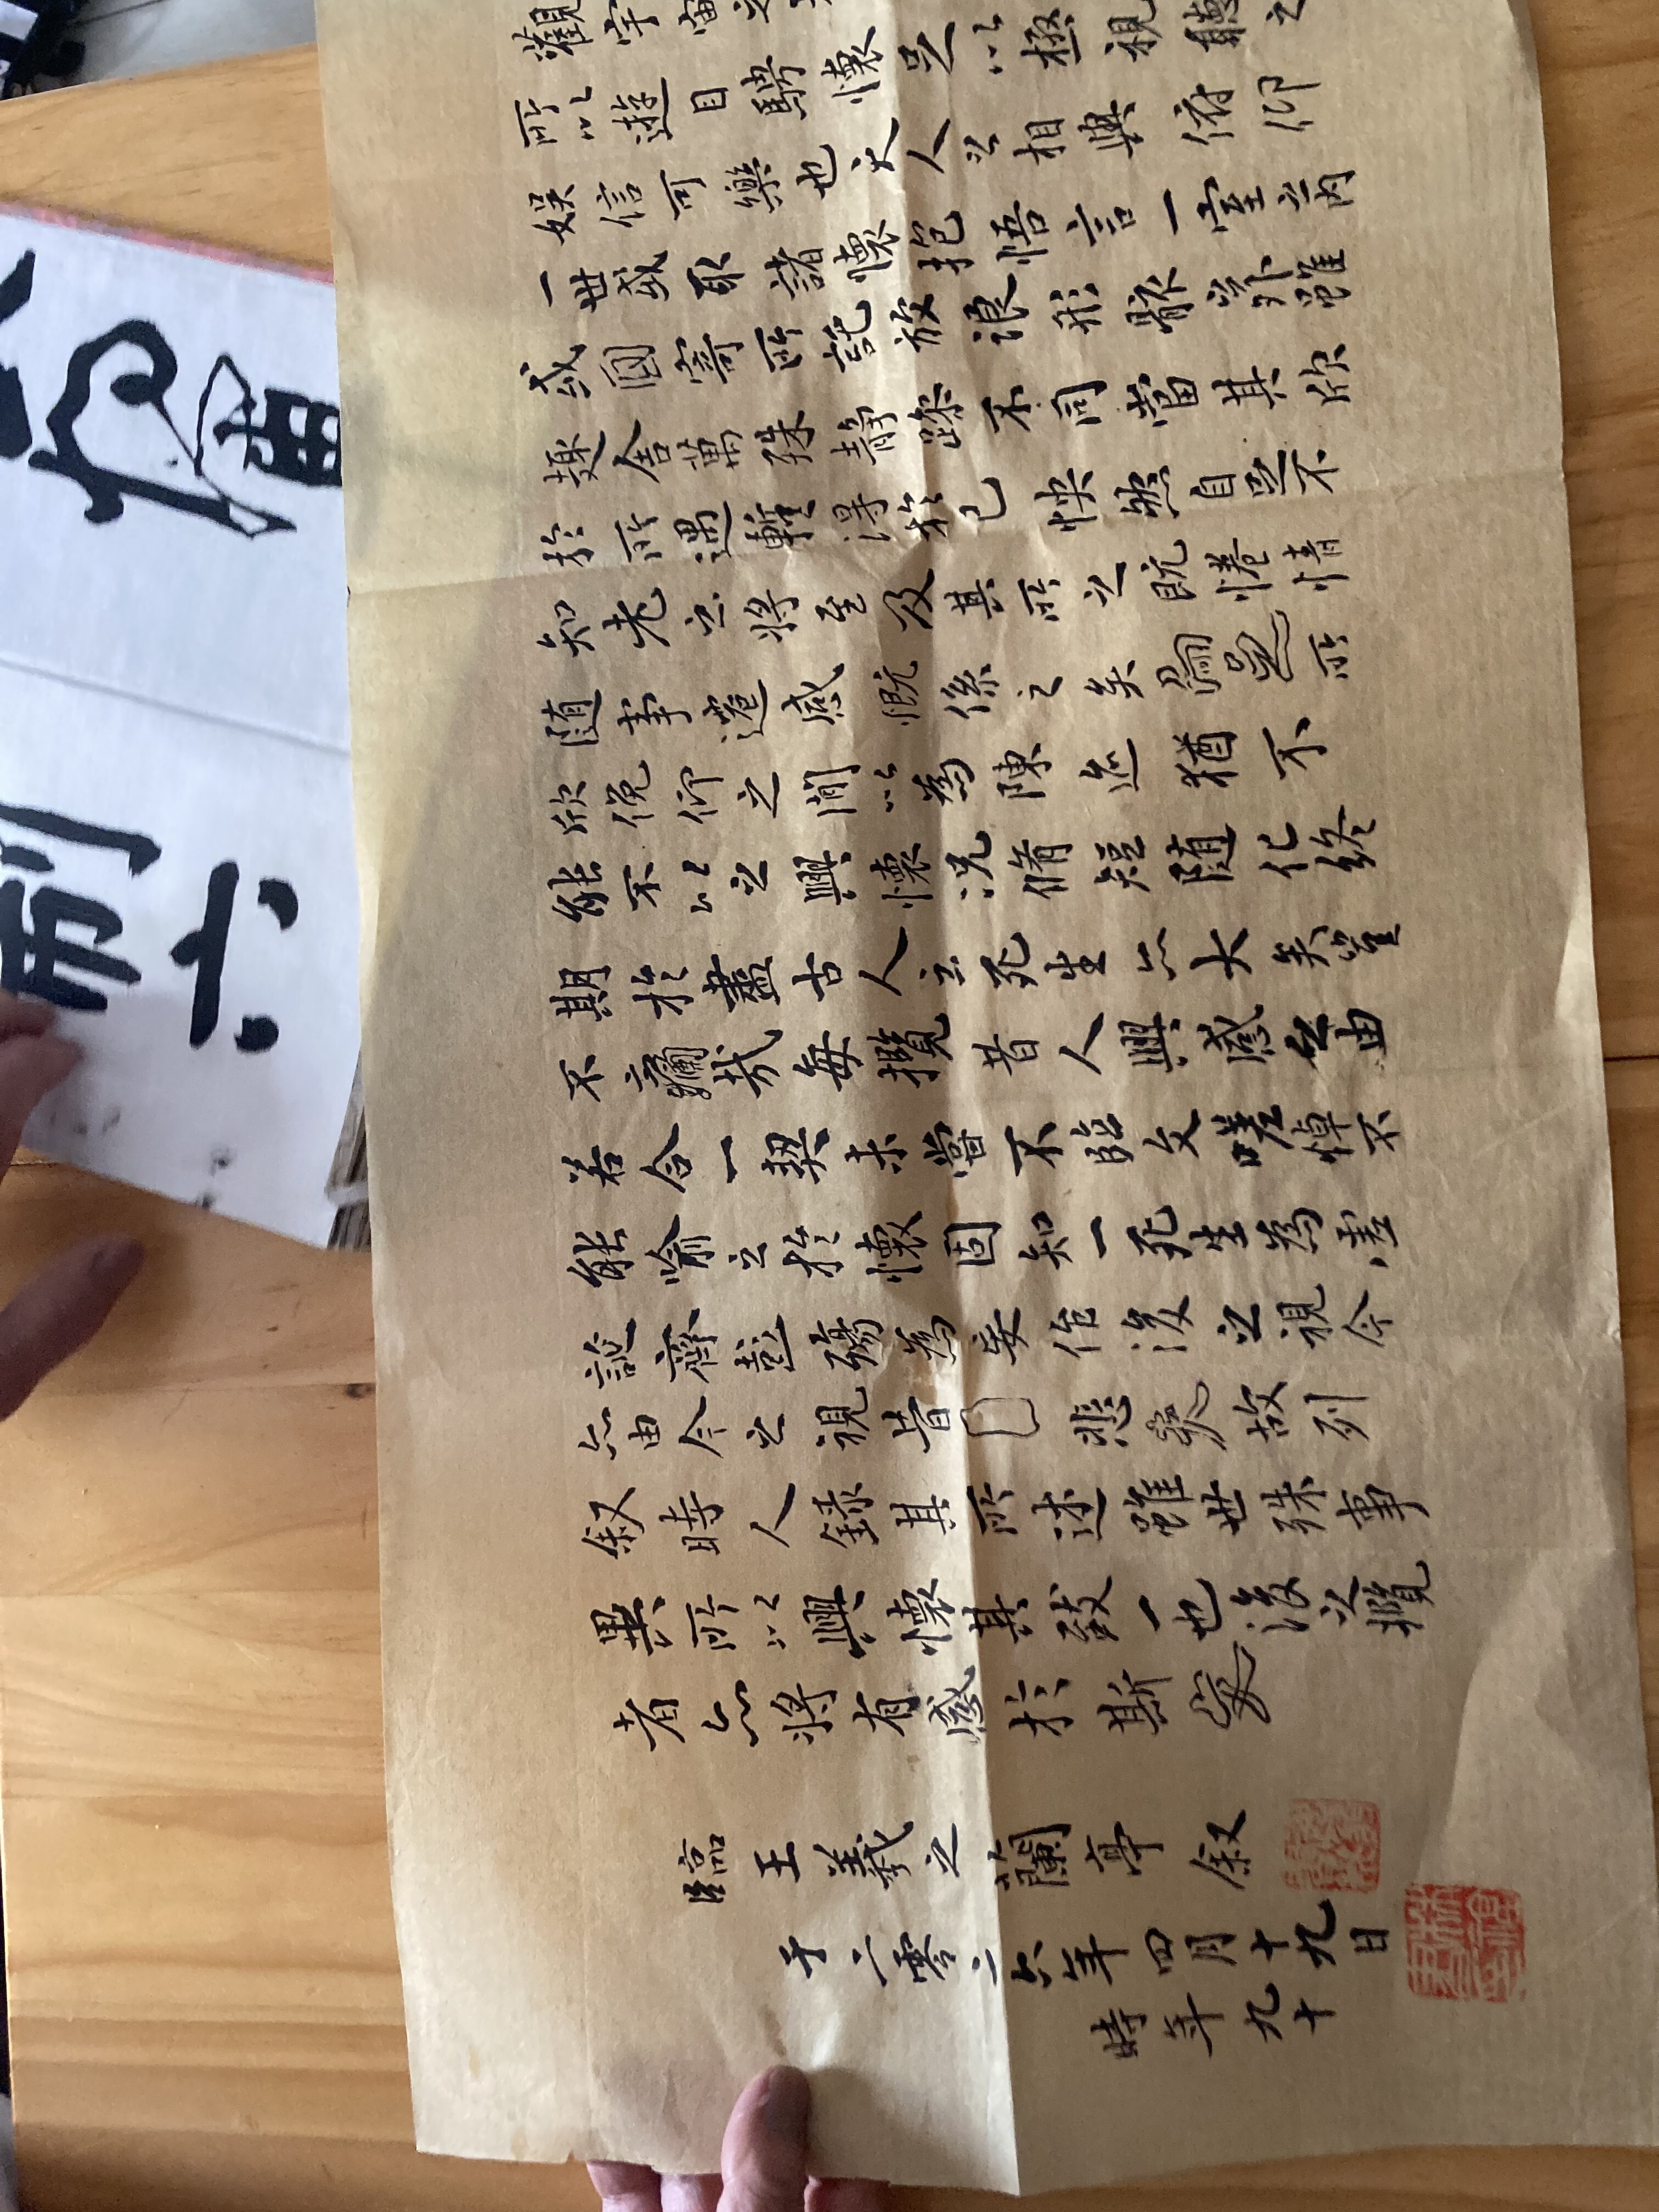 觀宇宙之
所以遊目騁懷足以極視聽之
娛信可樂也夫人之相與俯仰
一世或取諸懷抱悟言一室之內
或因寄所託放浪形骸之外雖
趣舍萬殊静躁不同當其欣
於所遇暫得於己怏然自足不
知老之將至及其所之既惓情
随事遷感慨係之矣向之所
欣俛仰之間以為陳迹猶不
能不以之興懷況脩短随化終
期於盡古人云死生亦大矣豈
不痛哉每攬昔人興感之由
若合一契未嘗不臨文嗟悼不
能喻之於懷固知一死生為虛
誕齊彭殤為妄作後之視今
亦由今之視昔悲夫故列
叙時人錄其所述雖世殊事
異所以興懷其致一也後之攬
者亦將有感於斯文
臨王羲之蘭亭叙
于二零二六年四月十九日
時年九十